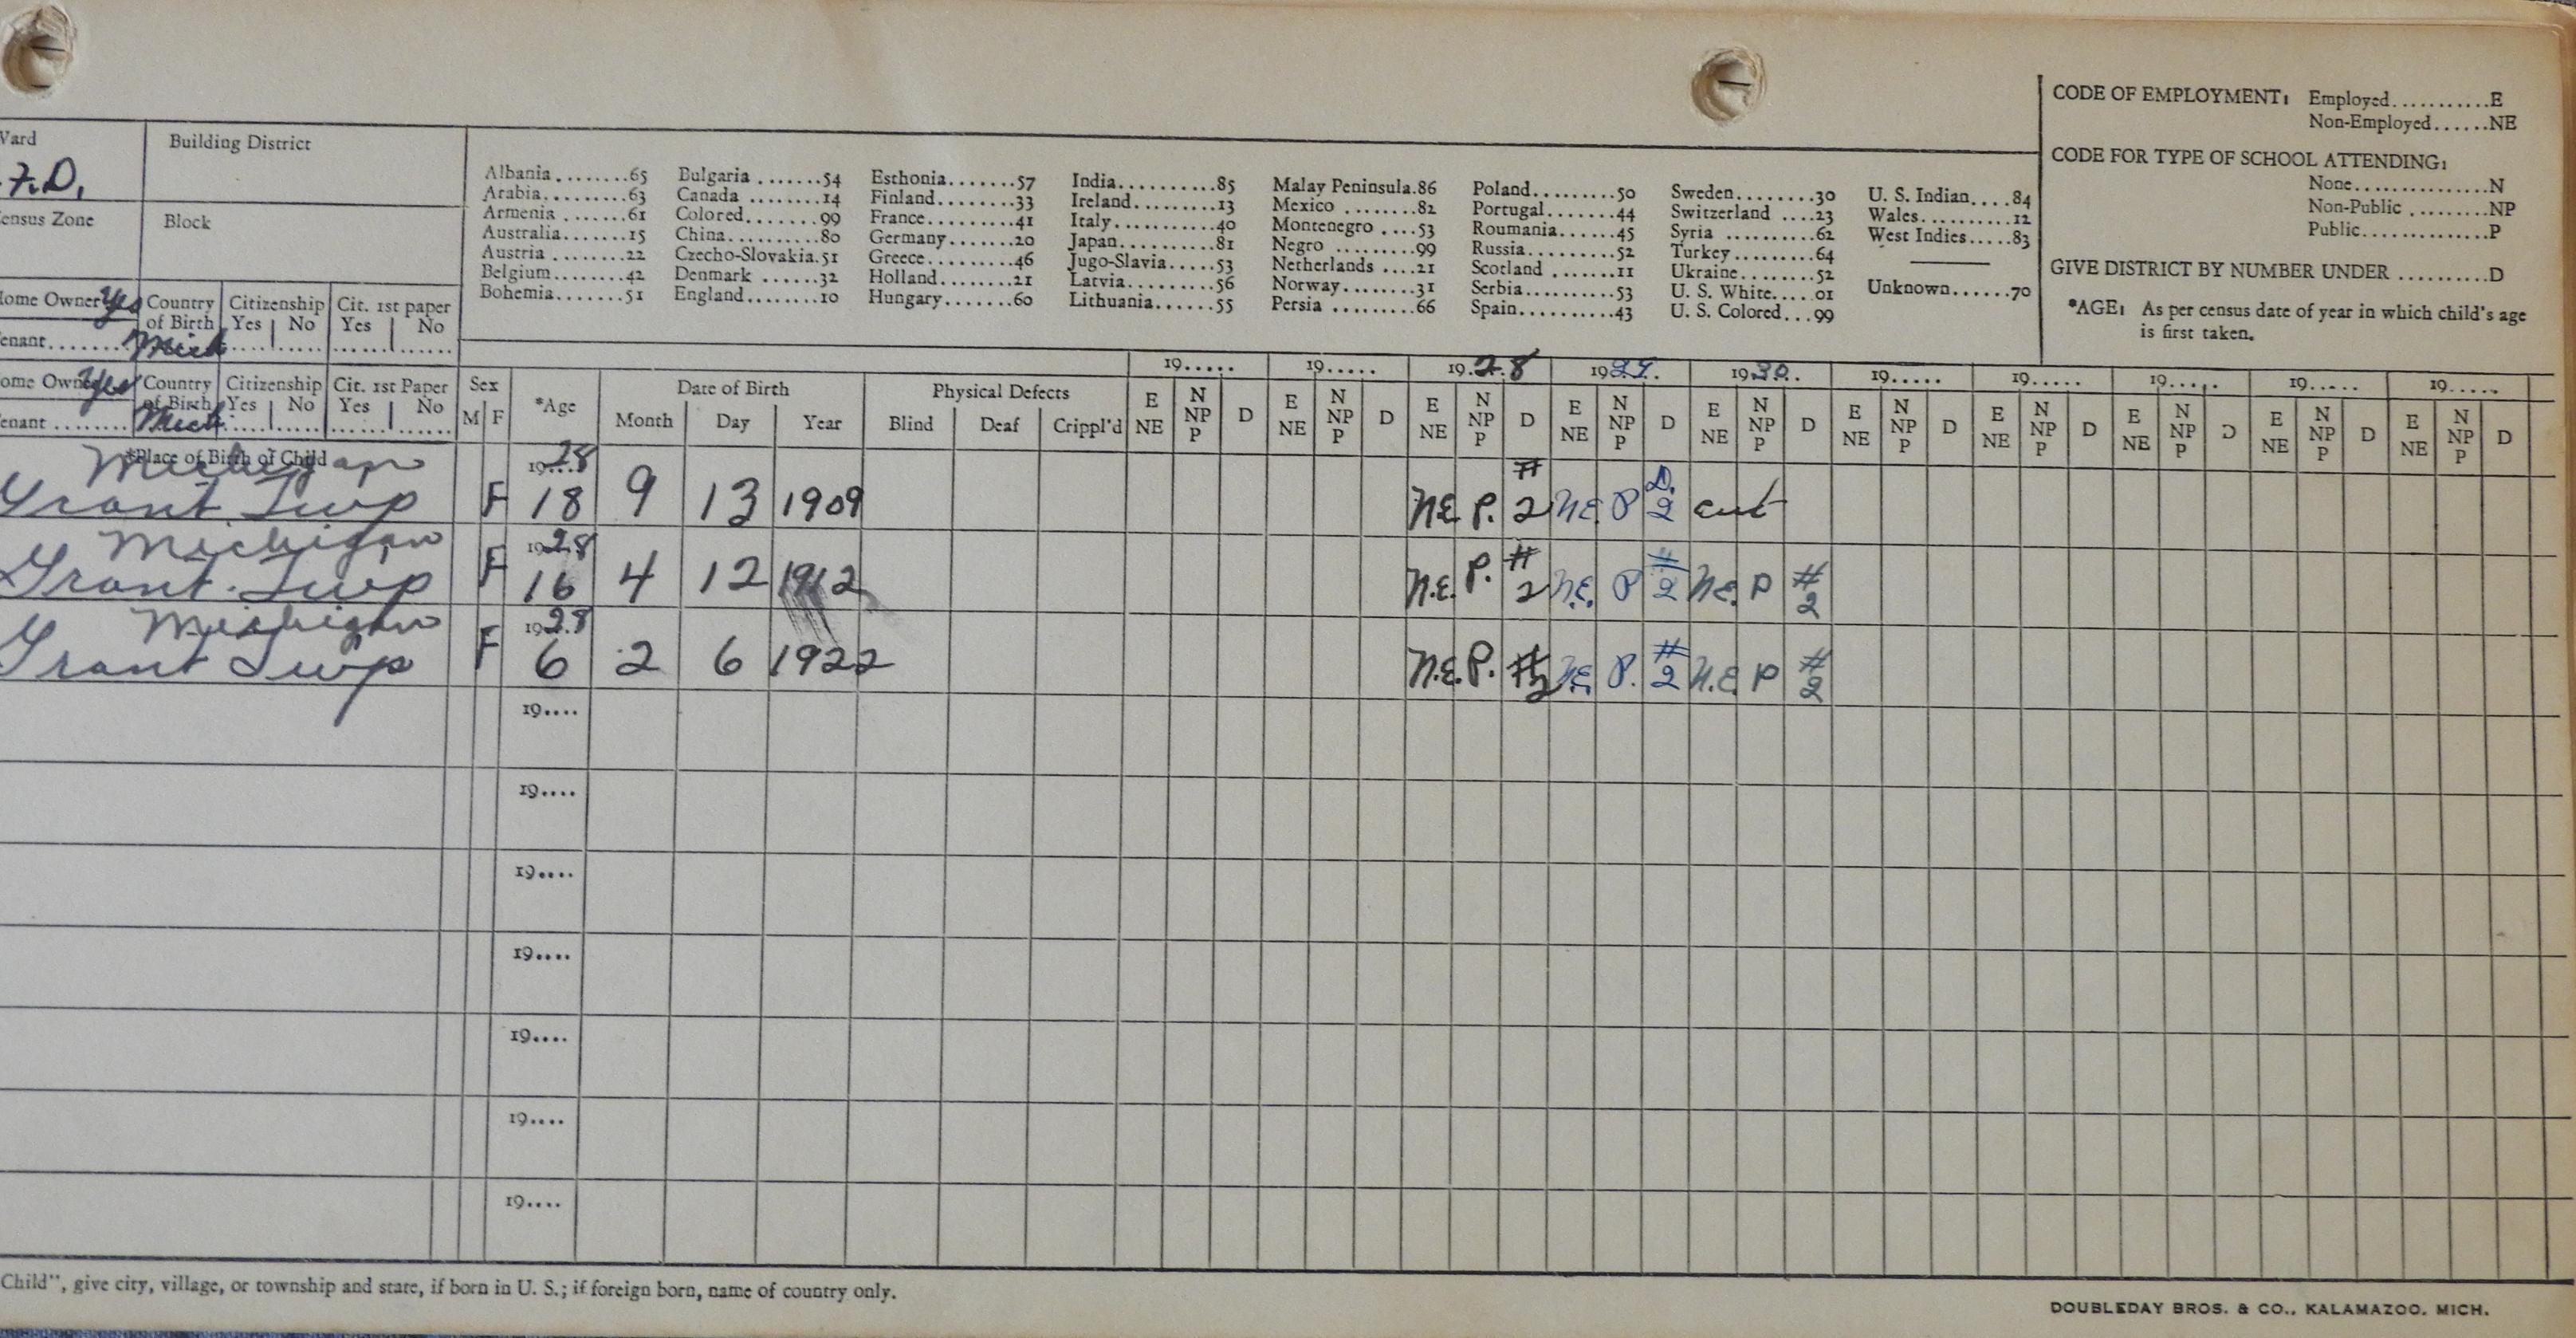 Ward
Building District
.F.D.
Census Zone
Block
Albania........65
Arabia........63
Armenia .......61
Australia.......15
Austria ........22
Belgium.......42
Bohemia.......51
Bulgaria .......54
Canada ........14
Colored........99
China..........80
Czecho-Slovakia.51
Denmark ......32
England........10
Esthonia.......57
Finland........33
France.........41
Germany.......20
Greece.........46
Holland........21
Hungary.......60
India..........85
Ireland.........13
Italy...........40
Japan..........81
Jugo-Slavia.....53
Latvia..........56
Lithuania.......55
Malay Peninsula.86
Mexico ........82
Montenegro ....53
Negro .........99
Netherlands ....21
Norway.........31
Persia .........66
Poland.........50
Portugal.......44
Roumania......45
Russia.........52
Scotland .......11
Serbia..........53
Spain..........43
Sweden........30
Switzerland ....23
Syria ..........62
Turkey.........64
Ukraine........52
U. S. White.....01
U. S. Colored...99
U. S. Indian....84
Wales..........12
West Indies.....83
Unknown......70
CODE OF EMPLOYMENT: Employed...........E
Non-Employed......NE
CODE FOR TYPE OF SCHOOL ATTENDING:
None..............N
Non-Public ........NP
Public..............P
GIVE DISTRICT BY NUMBER UNDER ..........D
*AGE: As per census date of year in which child's age
is first taken.
Home Owner Yes Country of Birth Citizenship Cit. 1st paper
Yes No Yes No
Tenant....... Mich
Home Owner Yes Country of Birth Citizenship Cit. 1st Paper
Yes No Yes No
Tenant ........ Mich.
19..... 19..... 1928 1929. 1930.. 19..... 19..... 19..... 19..... 19.....
Sex *Age Date of Birth Physical Defects
M F Month Day Year Blind Deaf Crippl'd
E NE N NP P D E NE N NP P D E NE N NP P D E NE N NP P D E NE N NP P D E NE N NP P D E NE N NP P D E NE N NP P D E NE N NP P D E NE N NP P D
*Place of Birth of Child
Michigan 1928
Grant Twp F 18 9 13 1909 N.E. P. # 2 N.E. P D. 2 cut
Michigan 1928
Grant Twp F 16 4 12 1912 N.E. P. # 2 N.E. P # 2 N.E. P # 2
Michigan 1928
Grant Twp F 6 2 6 1922 N.E. P. #2 N.E. P. # 2 N.E. P # 2
19....
19....
19....
19....
19....
19....
19....
Child", give city, village, or township and state, if born in U. S.; if foreign born, name of country only.
DOUBLEDAY BROS. & CO., KALAMAZOO, MICH.